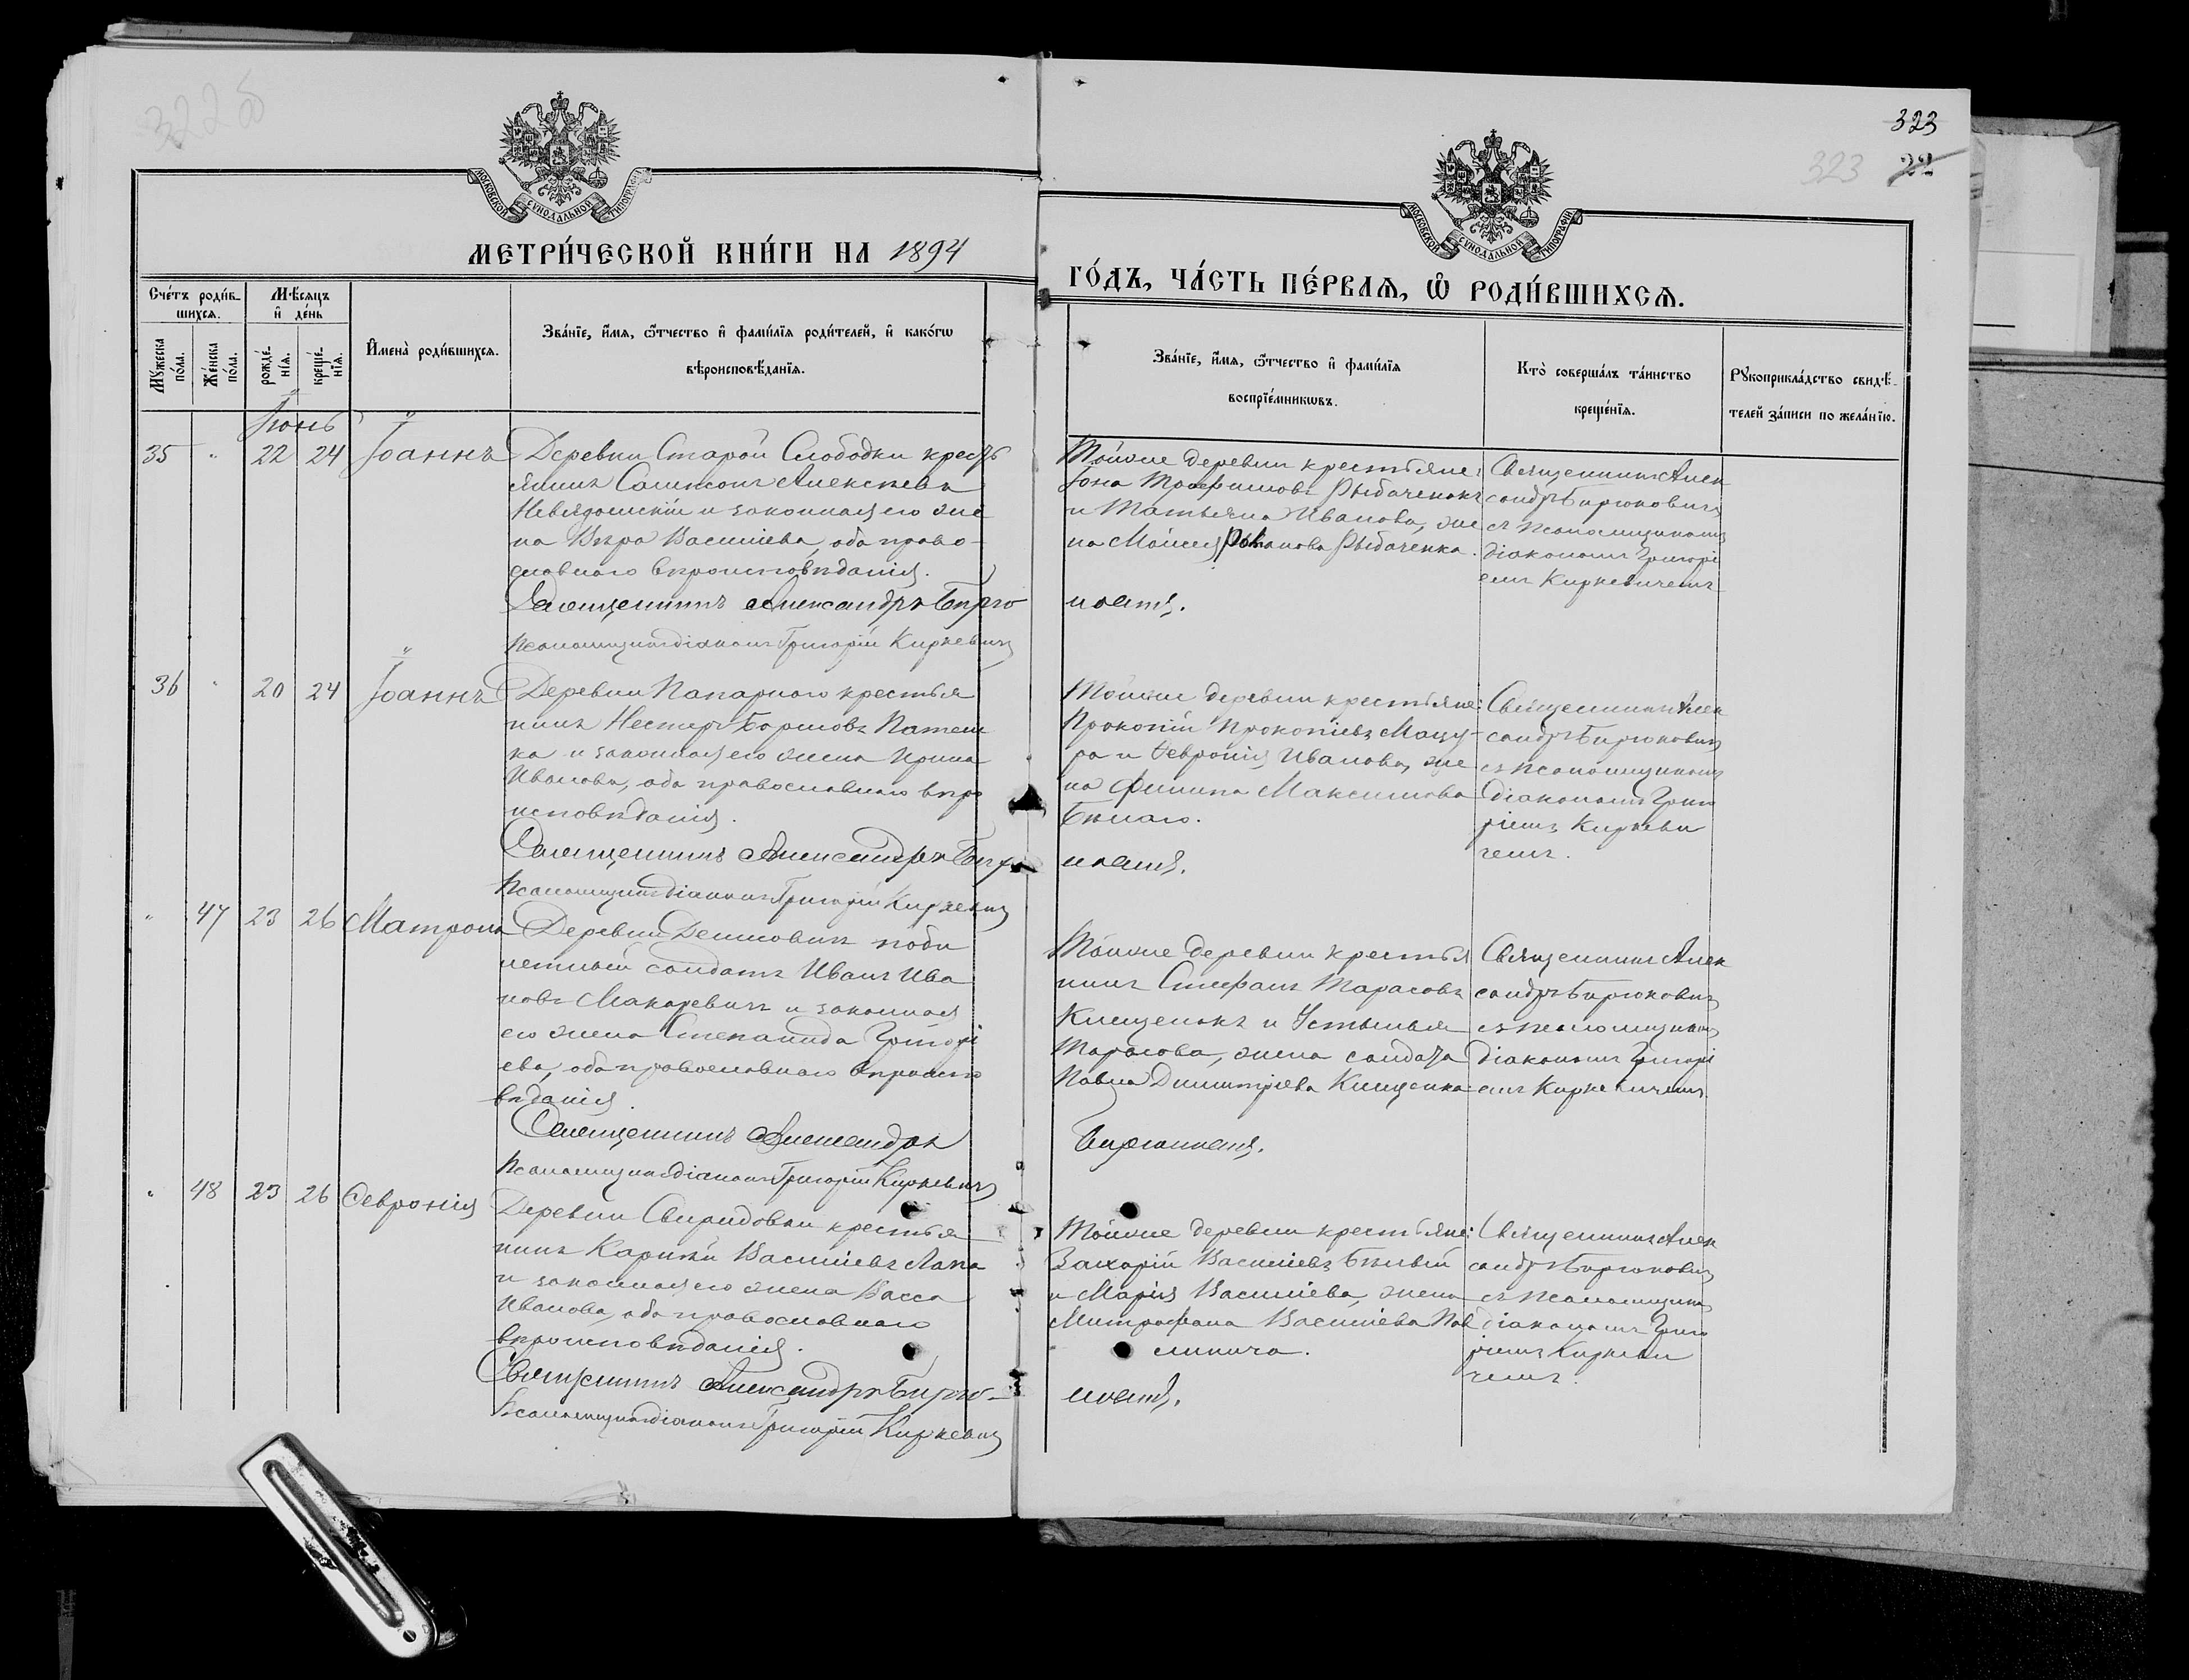 322 об
323
323 22
МОСКОВСКОЙ СѴНОДАЛЬНОЙ ТИПОГРАФІИ
МЕТРИ́ЧЕСКОЙ КНИ́ГИ НА 1894
МОСКОВСКОЙ СѴНОДАЛЬНОЙ ТИПОГРАФІИ
ГО́ДЪ, ЧА́СТЬ ПЕ́РВАѦ, Ѡ҆ РОДИ́ВШИХСѦ.
Сче́тъ роди́в-
шихсѧ.
Мꙋ́жеска по́ла.
Же́нска по́ла.
Мѣ́сѧцъ
и҆ де́нь
рожде́-
нїѧ.
креще́-
нїѧ.
И҆мена̀ роди́вшихсѧ.
Зва́нїе, и҆́мѧ, ѻ҆́тчество и҆ фами́лїѧ роди́телей, и҆ како́гѡ
вѣроисповѣ́данїѧ.
Зва́нїе, и҆́мѧ, ѻ҆́тчество и҆ фами́лїѧ
воспрїе́мникѡвъ.
Кто̀ соверша́лъ та́инство
креще́нїѧ.
Рꙋкоприкла́дство свидѣ́-
телей за́писи по жела́нїю.
Іюнь
35 " 22 24 Іоаннъ
Деревни Старой Слободки кресть
янинъ Самсонъ Алексѣевъ
и законная его же
на Вѣра Васильева, оба право-
славнаго вѣроисповѣданія.
Священникъ Александръ Бирю
Псаломщикъ діаконъ Григорій Киркевичъ
Тойже деревни крестьяне:
Іона Трофимовъ Рыбаченокъ
и Татьяна Иванова, же
на Моисея Романова Рыбаченка.
ковичъ.
Священникъ Алек
сандръ Бирюковичъ
съ псаломщикомъ
діакономъ Григорі
емъ Киркевичемъ
36 " 20 24 Іоаннъ
Деревни Папарнаго крестья
нинъ Нестеръ Борисовъ
ка и законная его жена Ирина
Иванова, оба православнаго вѣро
исповѣданія.
Священникъ Александръ Бирю
Псаломщикъ діаконъ Григорій Киркевичъ
Тойже деревни крестьяне:
Прокопій Прокопіевъ Мацу-
ра и Февронія Иванова, же
на Филипа Максимова
Бѣлаго.
ковичъ.
Священникъ Алек
сандръ Бирюковичъ
съ псаломщикомъ
діакономъ Григо
ріемъ Киркеви
чемъ.
" 47 23 26 Матрона
Деревни Демковичъ поби
летный солдатъ Иванъ Ива
новъ Макаревичъ и законная
его жена Степанида Григорі
ева, оба православнаго вѣроиспо
вѣданія.
Священникъ Александръ
Псаломщикъ діаконъ Григорій Киркевичъ
Тойже деревни крестья
нинъ Стефанъ Тарасовъ
Клещенокъ и Устинья
Тарасова, жена солдата
Павла Димитріева Клещенка
Бирюковичъ.
Священникъ Алек
сандръ Бирюковичъ
съ псаломщикомъ
діакономъ Григорі
емъ Киркевичемъ.
" 48 23 26 Февронія
Деревни Свиридовки крестья
нинъ Карпъ Васильевъ Лапа
и законная его жена Васса
Иванова, оба православнаго
вѣроисповѣданія.
Священникъ Александръ Бирю-
Псаломщикъ діаконъ Григорій Киркевичъ
Тойже деревни крестьяне:
Захарій Васильевъ Бѣлый
и Марія Васильева, жена
Митрофана Васильева Пав
ковичъ.
Священникъ Алек
сандръ Бирюковичъ
съ псаломщикомъ
діакономъ Григо
ріемъ Киркеви
чемъ.